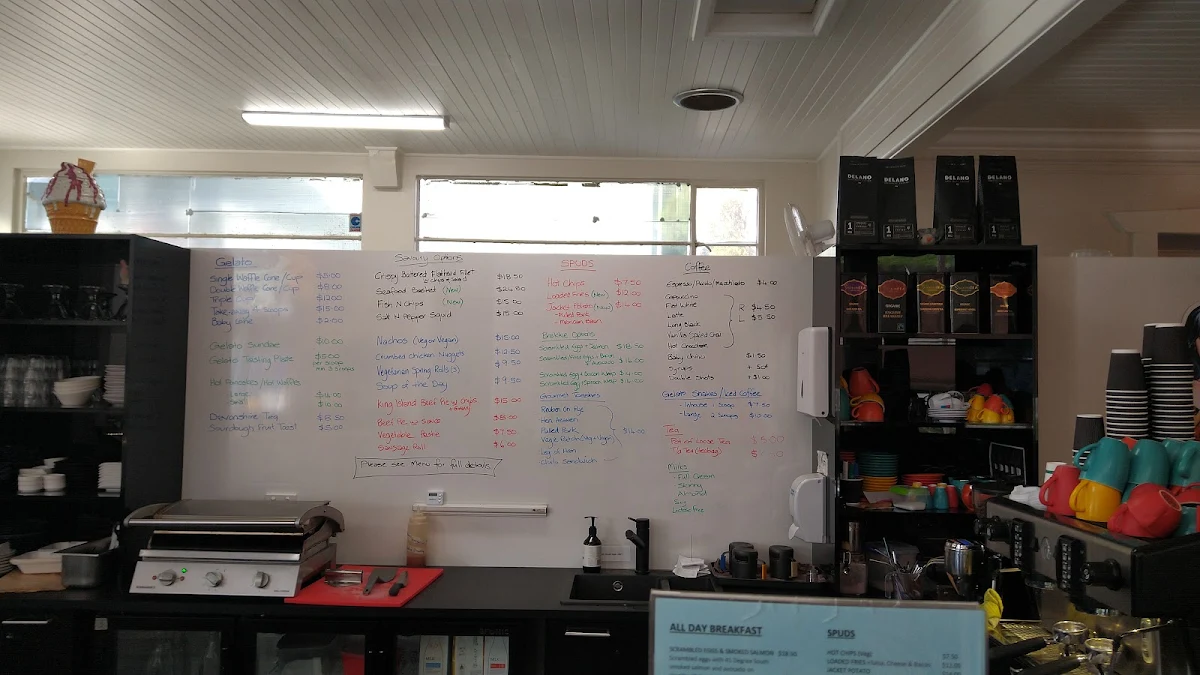 Gelato
Single Waffle Cone/Cup $5.00
Double Waffle Cone/Cup $8.00
Triple $12.00
Take-away 4 Scoops $15.00
Baby Cone $2.00
Gelato Sundae $10.00
Gelato Tasting Plate $3.00
Hot Pancakes/Hot Waffles
Large
Small
Devonshire Tea
Sourdough Fruit Toast
Savoury Options
Crispy Battered Flathead Fillet $18.50
Chips & Salad
Seafood Basket (New)
Fish N Chips (New) $15.00
Salt N Pepper Squid $15.00
Nachos (Veg or Vegan) $15.00
Crumbed Chicken Nuggets $12.50
Vegetarian Spring Rolls (3) $9.50
Soup of the Day $9.50
King Island Beef Pie w/ Chips $15.00
Beef Pie w/ Sauce $8.00
Vegetable Pastie $7.50
Sausage Roll $6.00
Please see Menu for full details
SPUDS
Hot Chips $7.50
Loaded Fries (New) $12.00
Jacket Potato (New) $14.00
- Pulled Pork
- Mexican Bean
Brekkie Options
Scrambled Egg + Salmon $18.50
Gourmet Toasties
Reuben on Rye
Pulled Pork
$16.00
Leg of Ham
Club Sandwich
Coffee
Espresso/Piccolo/Macchiato $4.00
Cappuccino
Flat White
Latte
Long Black
Hot Chocolate
R $4.50
L $5.50
Baby Chino $1.50
Syrups + 50¢
Double Shots + $1.00
Gelati Shakes/Iced Coffee
- Large 2 Scoops $10.00
Tea
Pot of Loose Tea $5.00
Tea (teabag)
Milks
- Full Cream
Skinny
Almond
Soy
Lactose Free
DELANO
DELANO
DELANO
DELANO
1
1
1
1
ALL DAY BREAKFAST
SCRAMBLED EGGS & SMOKED SALMON $18.50
Scrambled eggs with 41 Degree South
smoked salmon and avocado on
SPUDS
HOT CHIPS (veg) $7.50
LOADED FRIES - Salsa, Cheese & Bacon $12.00
JACKET POTATO